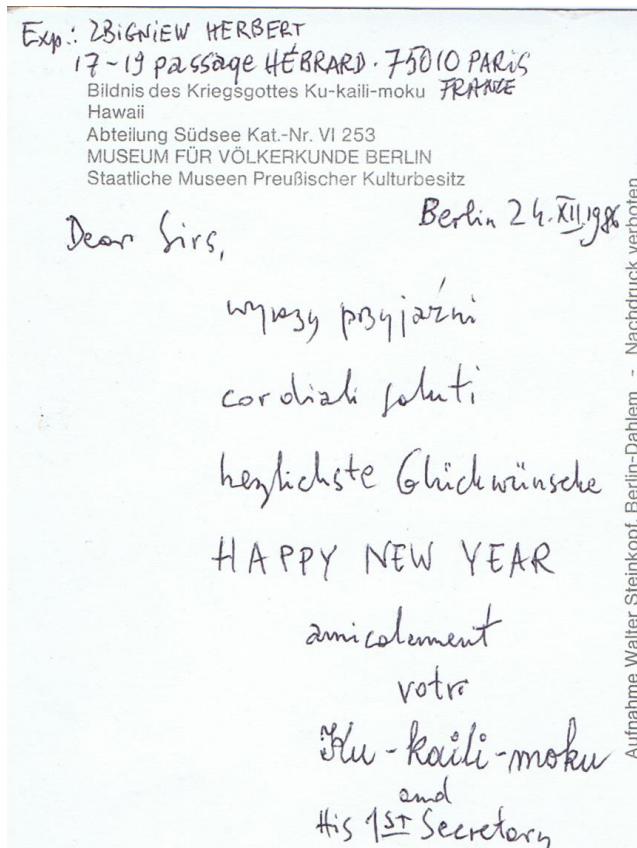 Exp.: ZBiGNiEW HERBERT
17-19 passage HÉBRARD. 75010 PARiS
Bildnis des Kriegsgottes Ku-kaili-moku FRANCE
Hawaii
Abteilung Südsee Kat.-Nr. VI 253
MUSEUM FÜR VÖLKERKUNDE BERLIN
Staatliche Museen Preußischer Kulturbesitz
Berlin 24. XII. 1986
Dear Sirs,
wyrazy przyjaźni
cordiali saluti
herzlichste Glückwünsche
HAPPY NEW YEAR
amicalement
votre
Ku-kaili-moku
and
His 1ST Secretary
Aufnahme Walter Steinkopf, Berlin-Dahlem - Nachdruck verboten